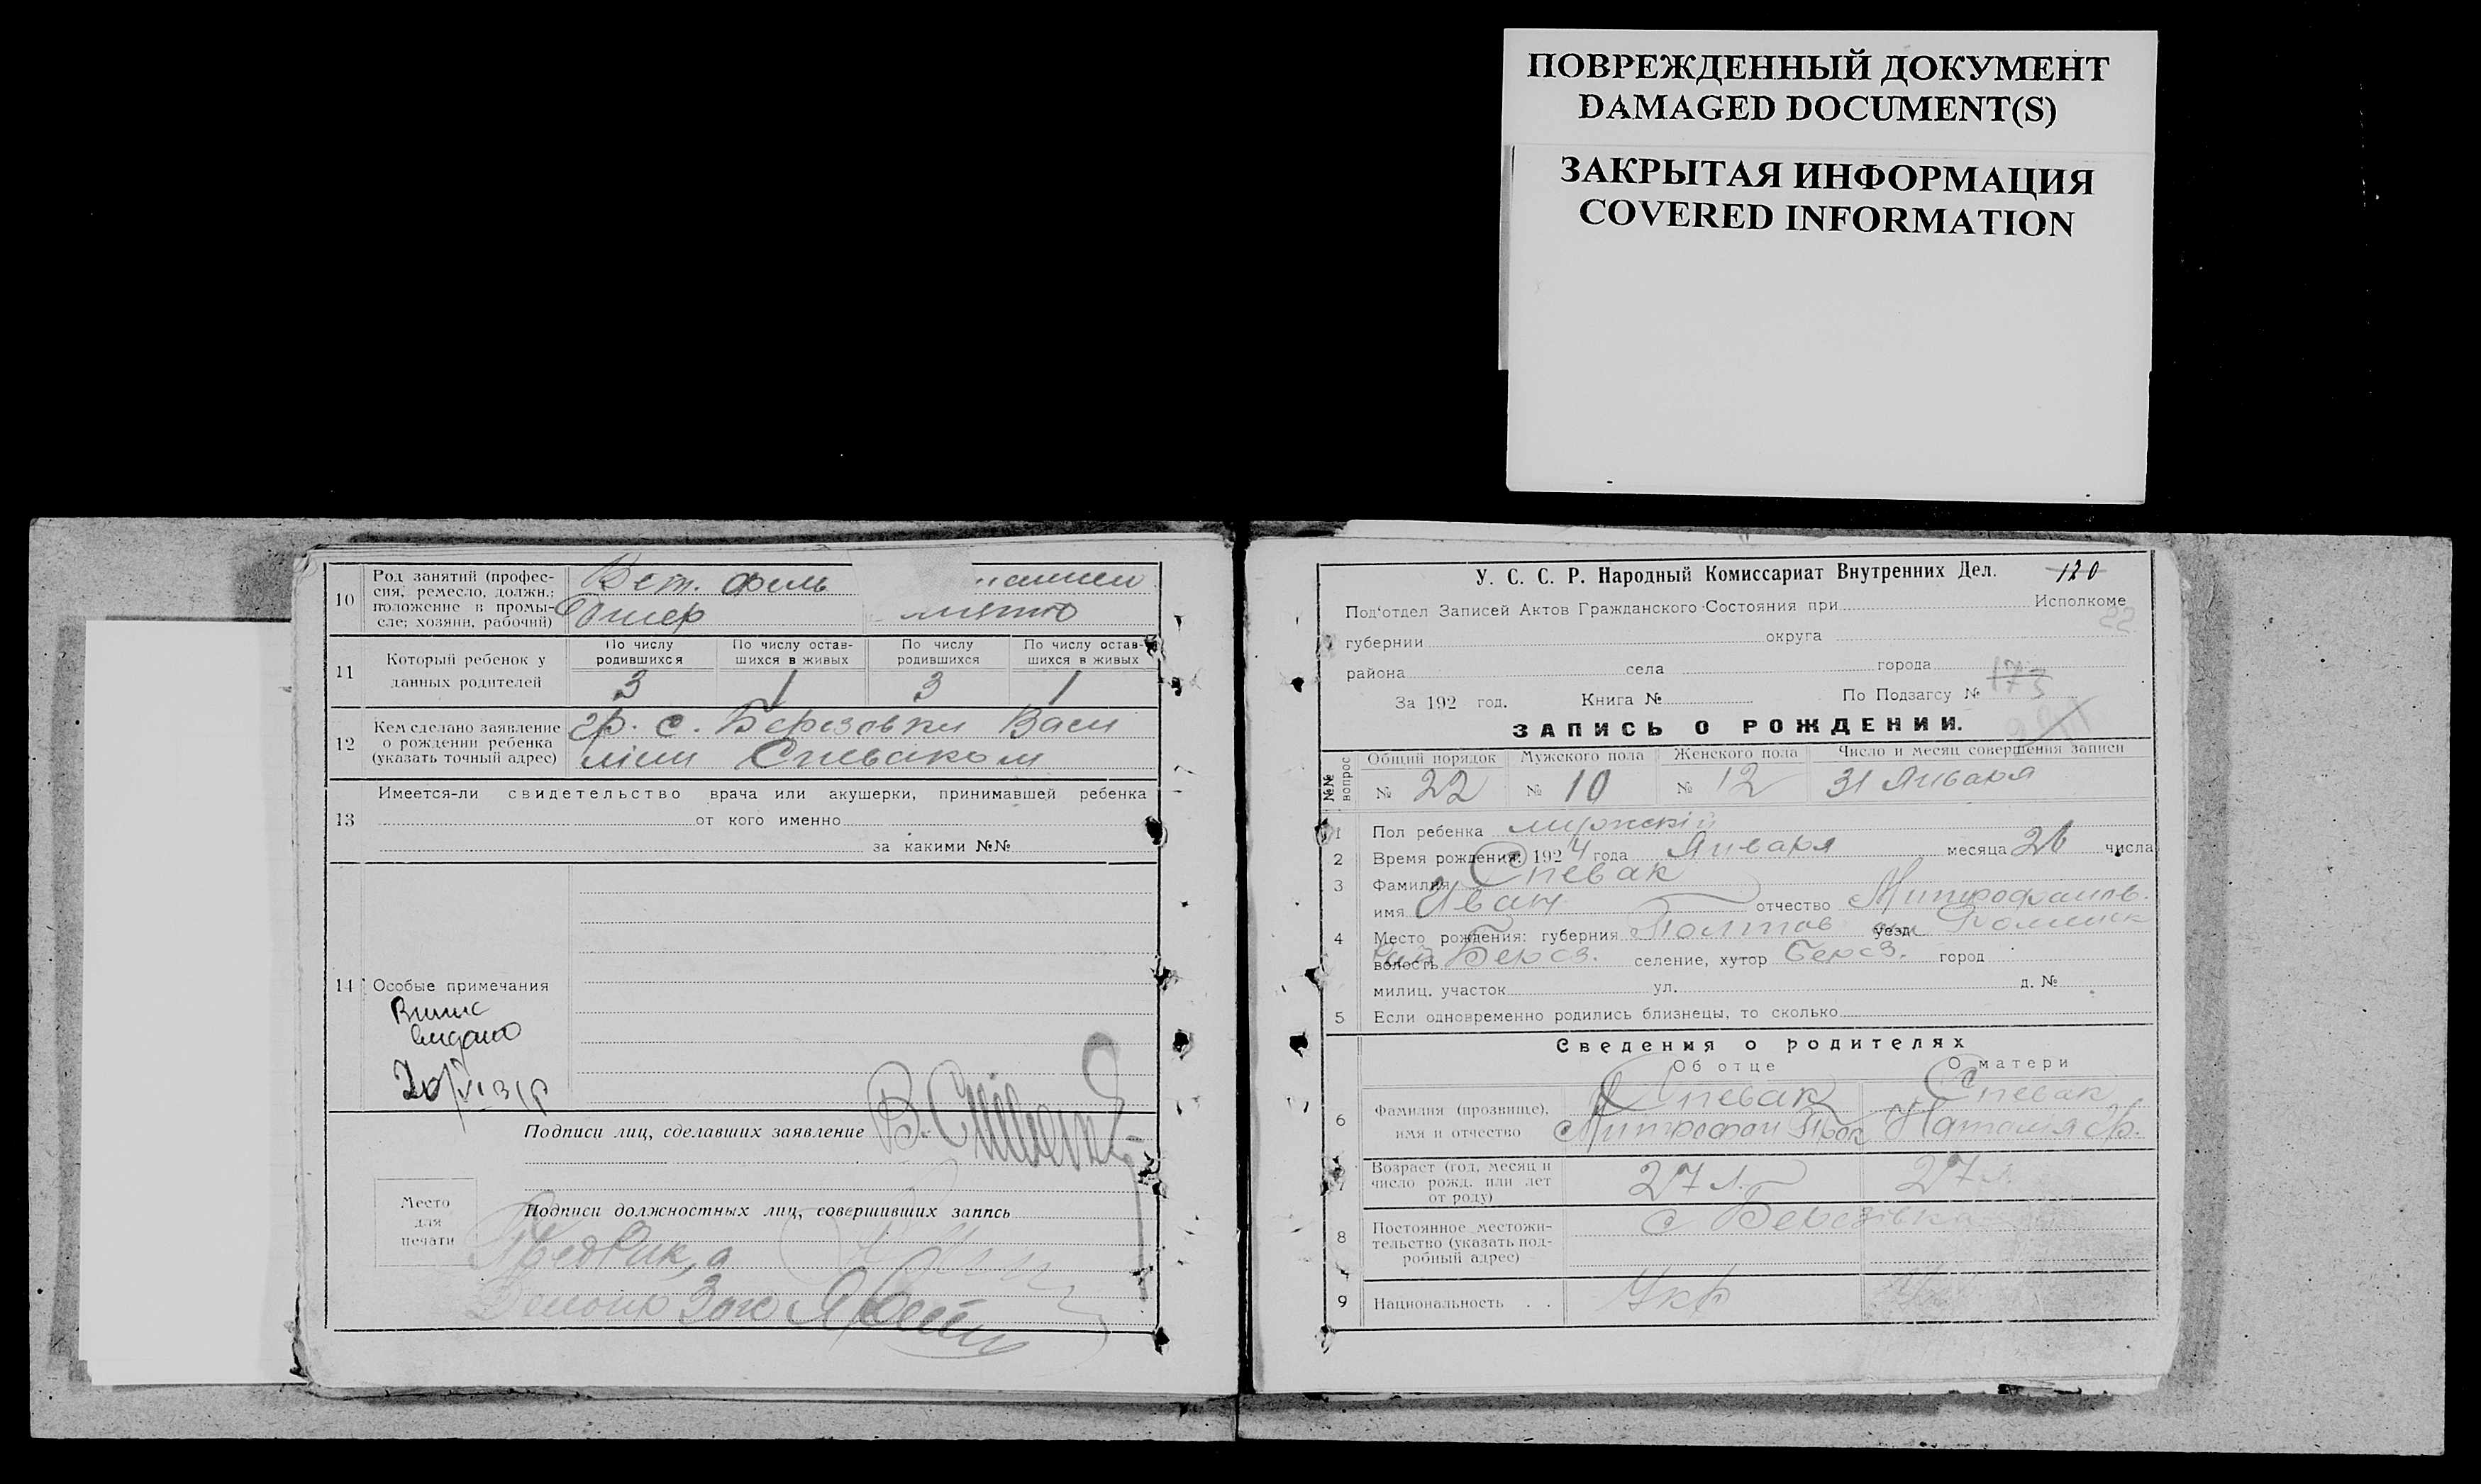 ПОВРЕЖДЕННЫЙ ДОКУМЕНТ
DAMAGED DOCUMENT(S)
ЗАКРЫТАЯ ИНФОРМАЦИЯ
COVERED INFORMATION
10 Род занятий (профес-
сия, ремесло, должн.;
положение в промы-
сле; хозяин, рабочий)
Вет. фель
шер
По числу родившихся По числу остав-шихся в живых По числу родившихся По числу остав-шихся в живых
11 Который ребенок у
данных родителей
3 1 3 1
12 Кем сделано заявление
о рождении ребенка
(указать точный адрес)
гр. с. Березовки Васи
лием Спеваком
13 Имеется-ли свидетельство врача или акушерки, принимавшей ребенка
от кого именно
за какими №№
14 Особые примечания
видано
Подписи лиц, сделавших заявление
Место
для
печати
Подписи должностных лиц, совершивших запись
У. С. С. Р. Народный Комиссариат Внутренних Дел. 120
Под'отдел Записей Актов Гражданского Состояния при Исполкоме
22
губернии округа
района села города
За 192 год. Книга № По Подзагсу № 173
ЗАПИСЬ О РОЖДЕНИИ.
№№ вопрос
Общий порядок Мужского пола Женского пола Число и месяц совершения записи
№ 22 № 10 № 12 31 Января
1 Пол ребенка мужскій
2 Время рождения: 1924 года Января месяца 26 числа
3 Фамилия Спевак
имя Иван отчество Митрофанов.
4 Место рождения: губерния Полтав уезд
волость Берез. селение, хутор Берез. город
милиц. участок ул. д. №
5 Если одновременно родились близнецы, то сколько
Сведения о родителях
Об отце О матери
6 Фамилия (прозвище),
имя и отчество
Спевак Спевак
Митрофан Наталия
7 Возраст (год, месяц и
число рожд. или лет
от роду)
27 л. 27 л.
8 Постоянное местожи-
тельство (указать под-
робный адрес)
с Березівка
9 Национальность . .
Укр